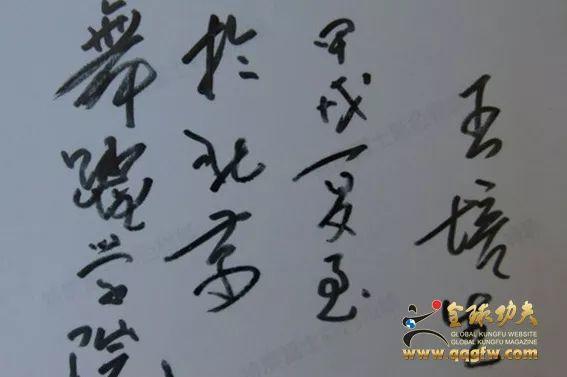 王培生
甲戌夏至
於北京
舞蹈学院
全球功夫
GLOBAL KUNGFU WEBSITE
GLOBAL KUNGFU MAGAZINE
www.qqgfw.com